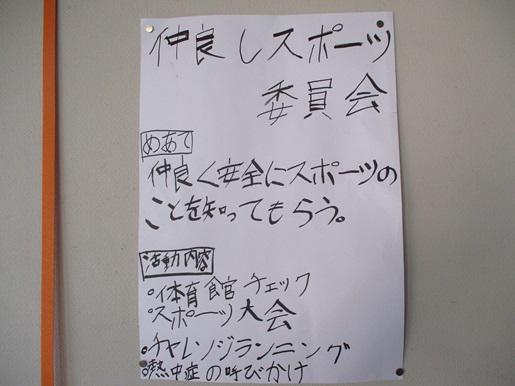 仲良しスポーツ
委員会
めあて
仲良く安全にスポーツの
ことを知ってもらう。
活動内容
・体育館チェック
・スポーツ大会
・チャレンジランニング
・熱中症の呼びかけ